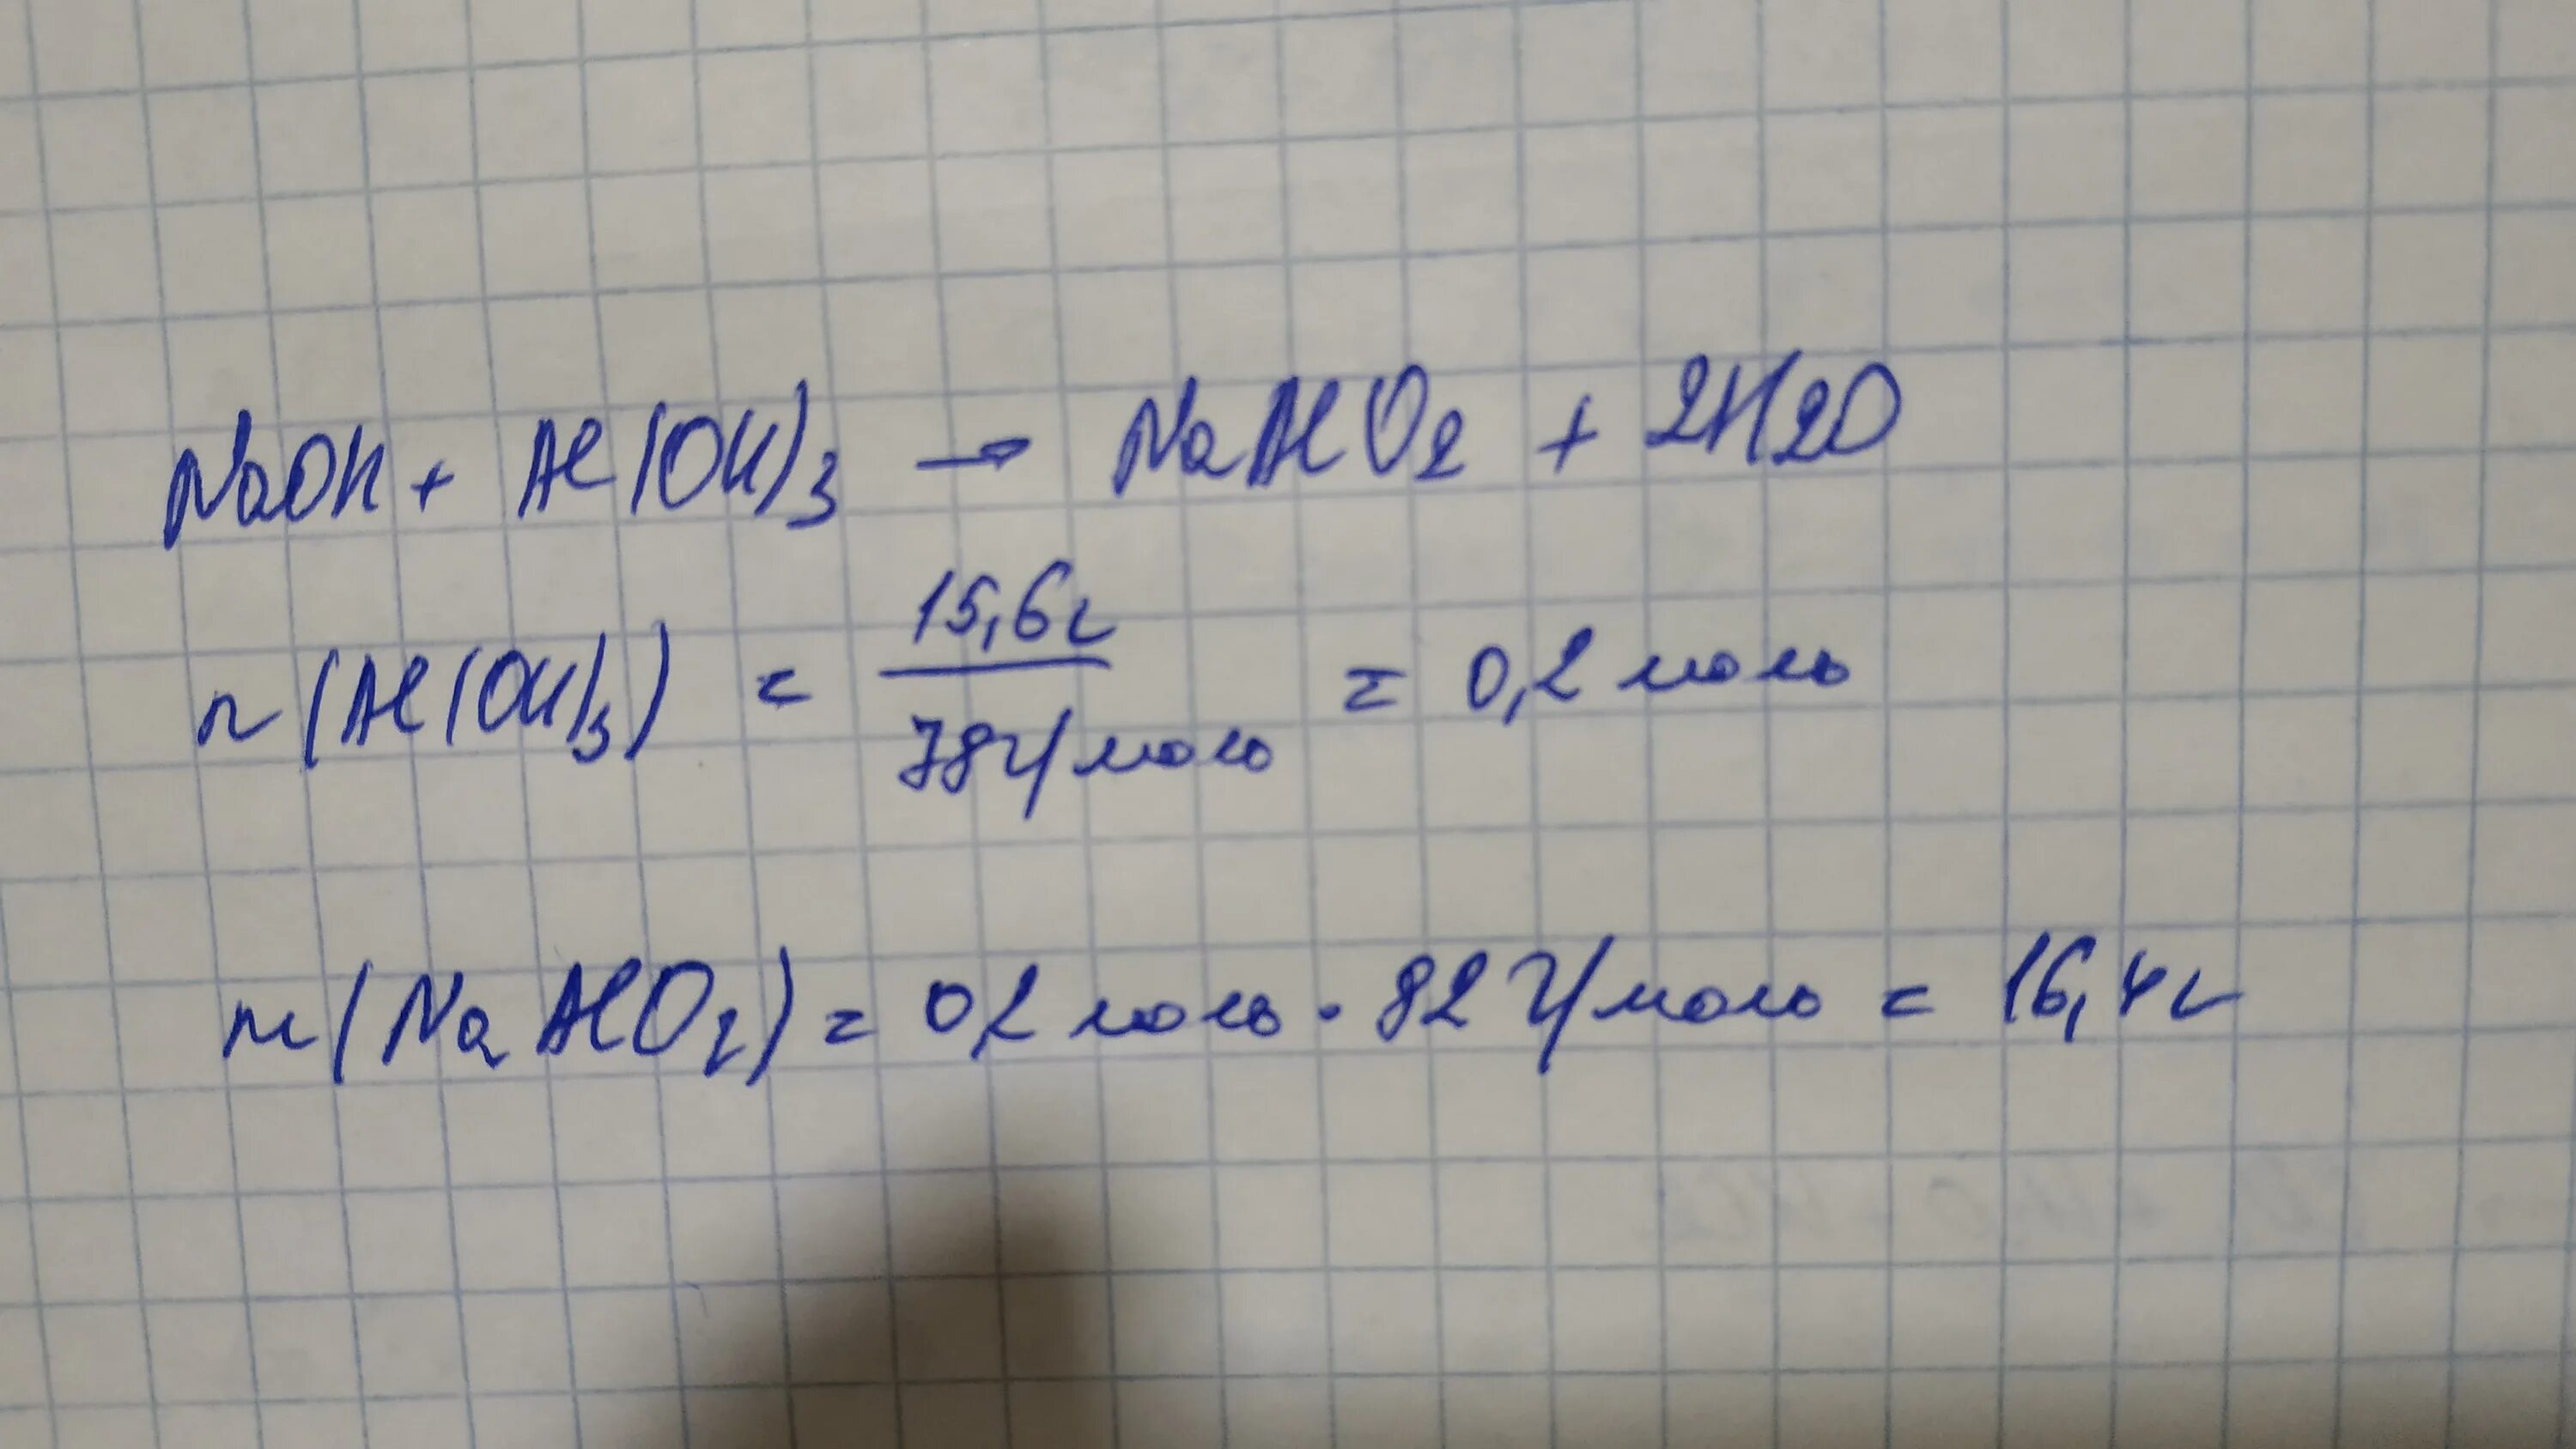 NaOH + Al(OH)3 → NaAlO2 + 2H2O
n(Al(OH)3) = 15,6г / 78г/моль = 0,2 моль
m(NaAlO2) = 0,2 моль · 82 г/моль = 16,4г